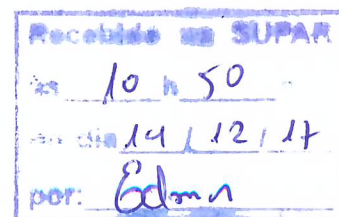 Recebido na SUPAR
às 10 h 50
no dia 14 / 12 / 17
por: